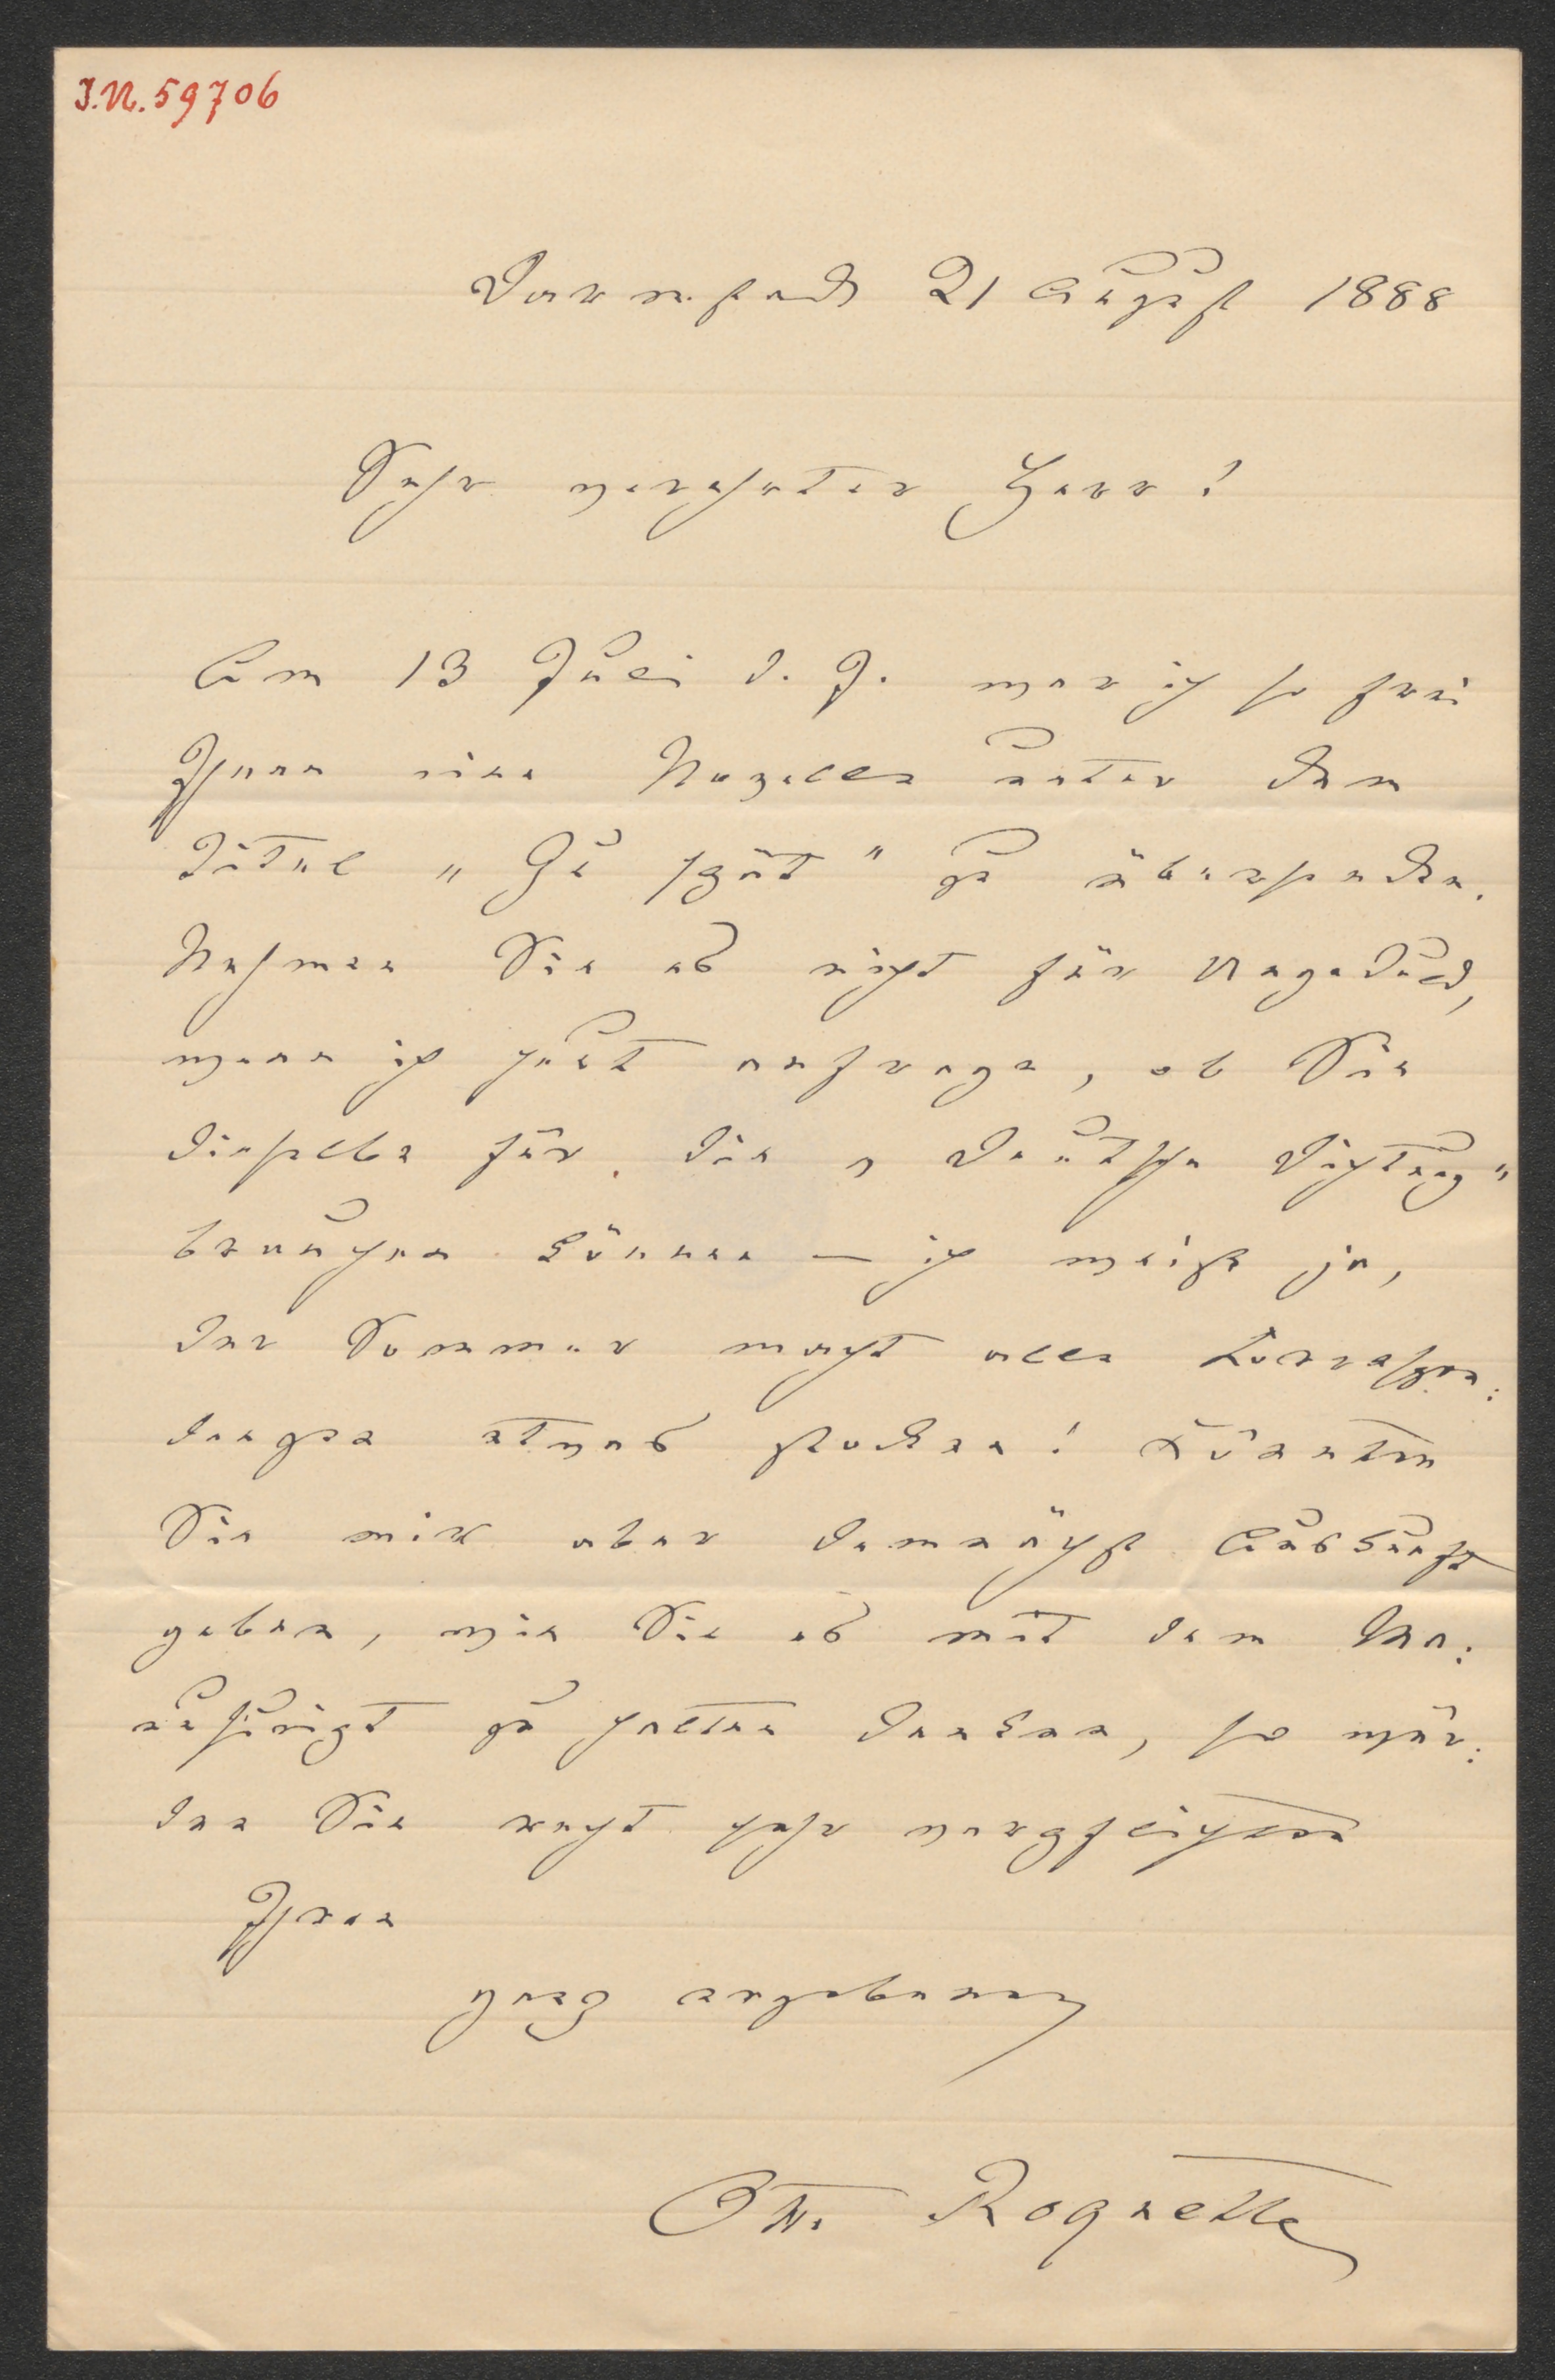 I.N. 59706
Darmstadt 21 August 1888
Sehr verehrter Herr!
Am 13 Juli d. J. war ich so frei
Ihnen eine Novelle unter dem
Titel „Zu spät" zu übersenden.
Nehmen Sie es nicht für Ungeduld,
wenn ich heut anfrage, ob Sie
dieselbe für die „Deutsche Dichtung"
brauchen können — ich weiß ja,
der Sommer macht alle Korrespon:
denzen etwas stocken! Könnten
Sie mir aber demnächst Auskunft
geben, wie Sie es mit dem Ma:
nuscript zu halten denken, so wür:
den Sie recht sehr verpflichten
Ihren
ganz ergebenen
Otto Roquette